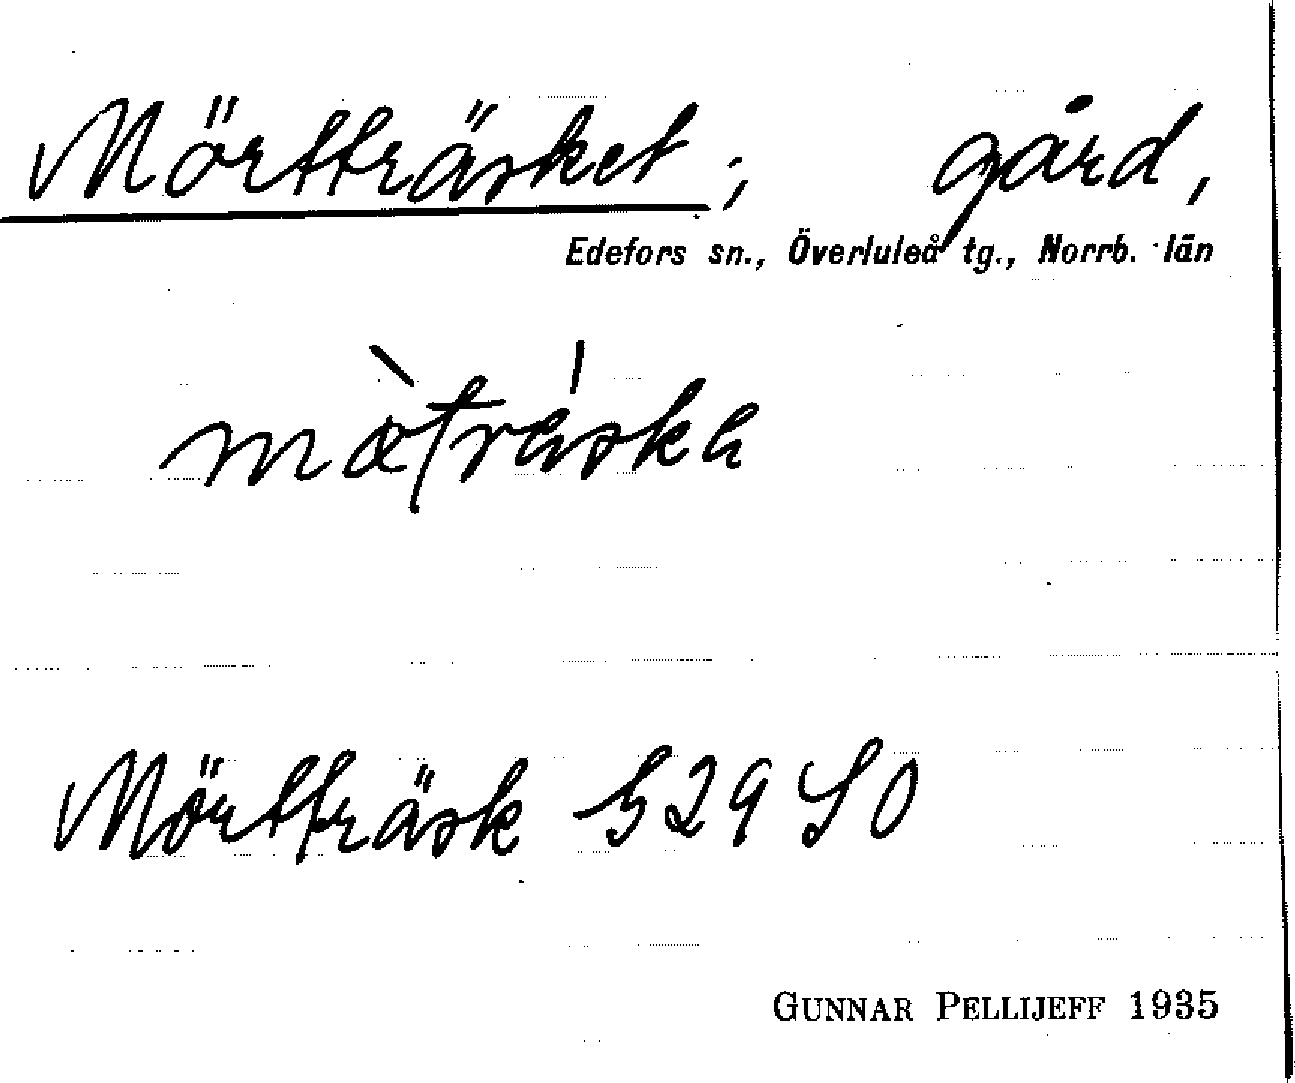 Mörtträsket, gård,
Edefors sn., Överluleå tg., Norrb. län
Mörtträsk 529 SO
GUNNAR PELLIJEFF 1935